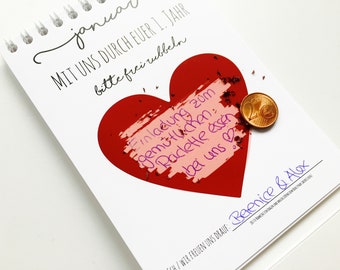 januar
MIT UNS DURCH EUER 1. JAHR
bitte frei rubbeln
Einladung zum
gemütlichen
Raclette essen
bei uns
ICH / WIR FREUEN UNS DRAUF
Berenice & Alex